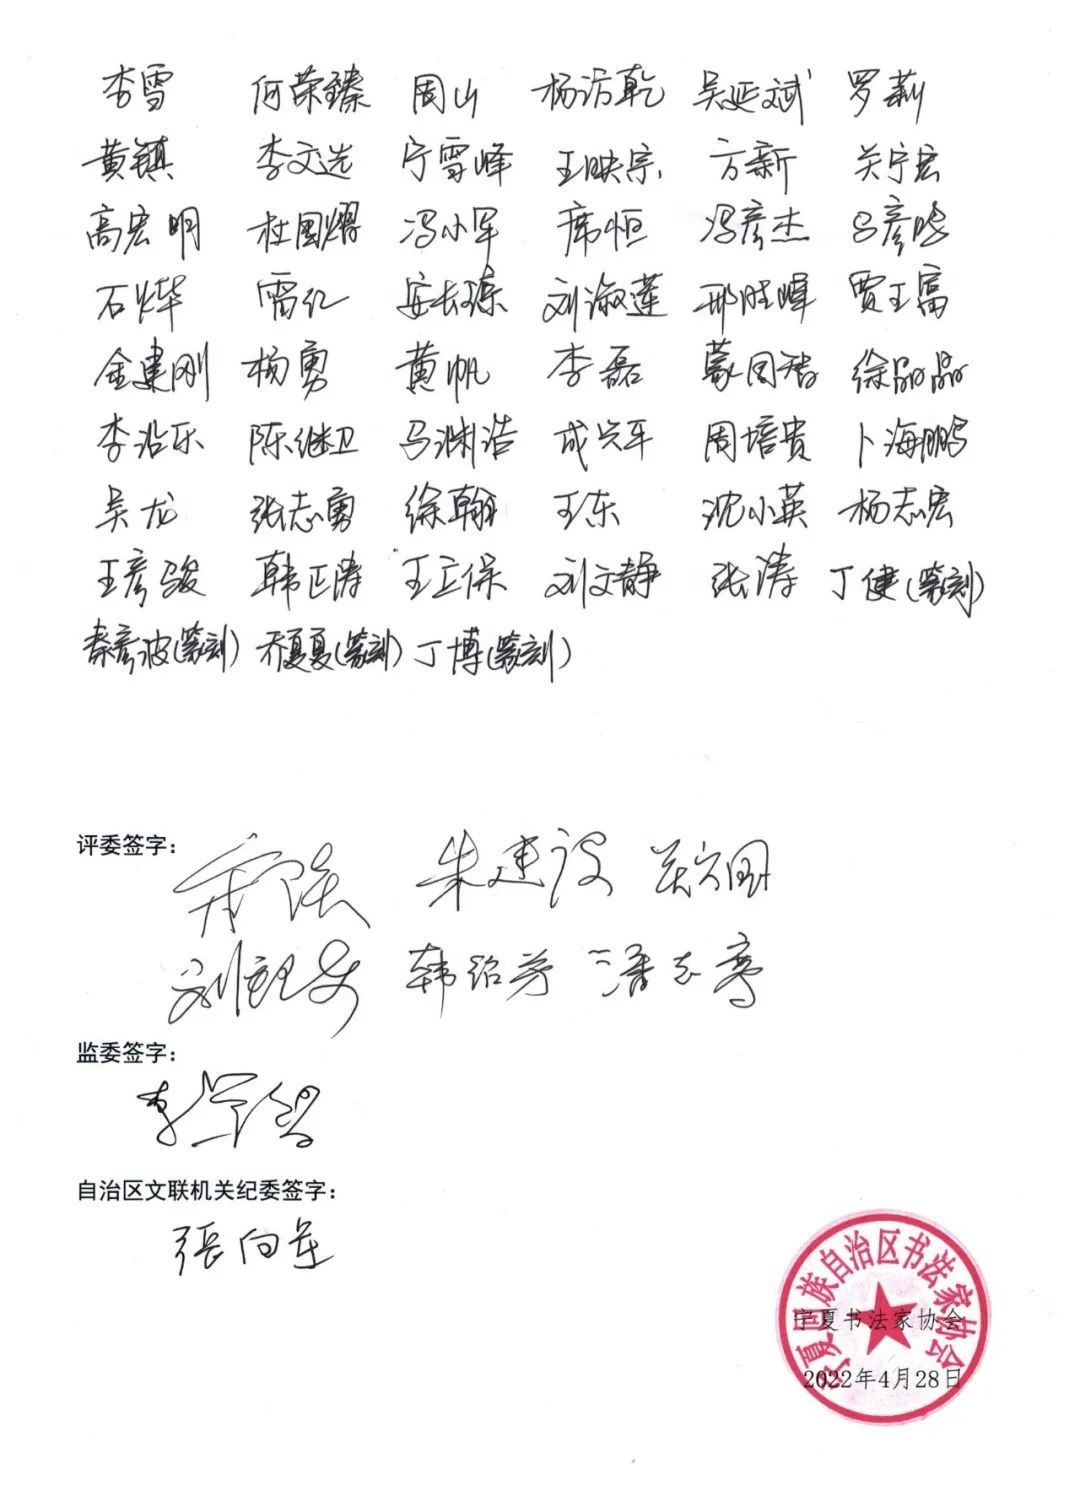 李雪 何荣臻 周山 杨访乾 吴延斌 罗莉
黄镇 李文选 宁雪峰 王映宗 方新 关宁宏
高宏明 杜国耀 冯小军 席恒 冯彦杰 马彦晓
石烨 雷红 安长琼 刘淑莲 邢胜峰 贾王富
金建刚 杨勇 黄帆 李磊 蒙国智 徐晶晶
李治乐 陈继卫 马渊浩 成兴军 周培贵 卜海鹏
吴龙 张志勇 徐翰 王东 沈小英 杨志宏
王彦骏 韩正涛 王立保 刘文静 张涛 丁健(篆刻)
秦彦波(篆刻) 乔夏夏(篆刻) 丁博(篆刻)
评委签字：
宋琰 朱建设 关宁国
韩绍芳 潘志骞
监委签字：
自治区文联机关纪委签字：
張向荣
宁夏回族自治区书法家协会
宁夏书法家协会
2022年4月28日